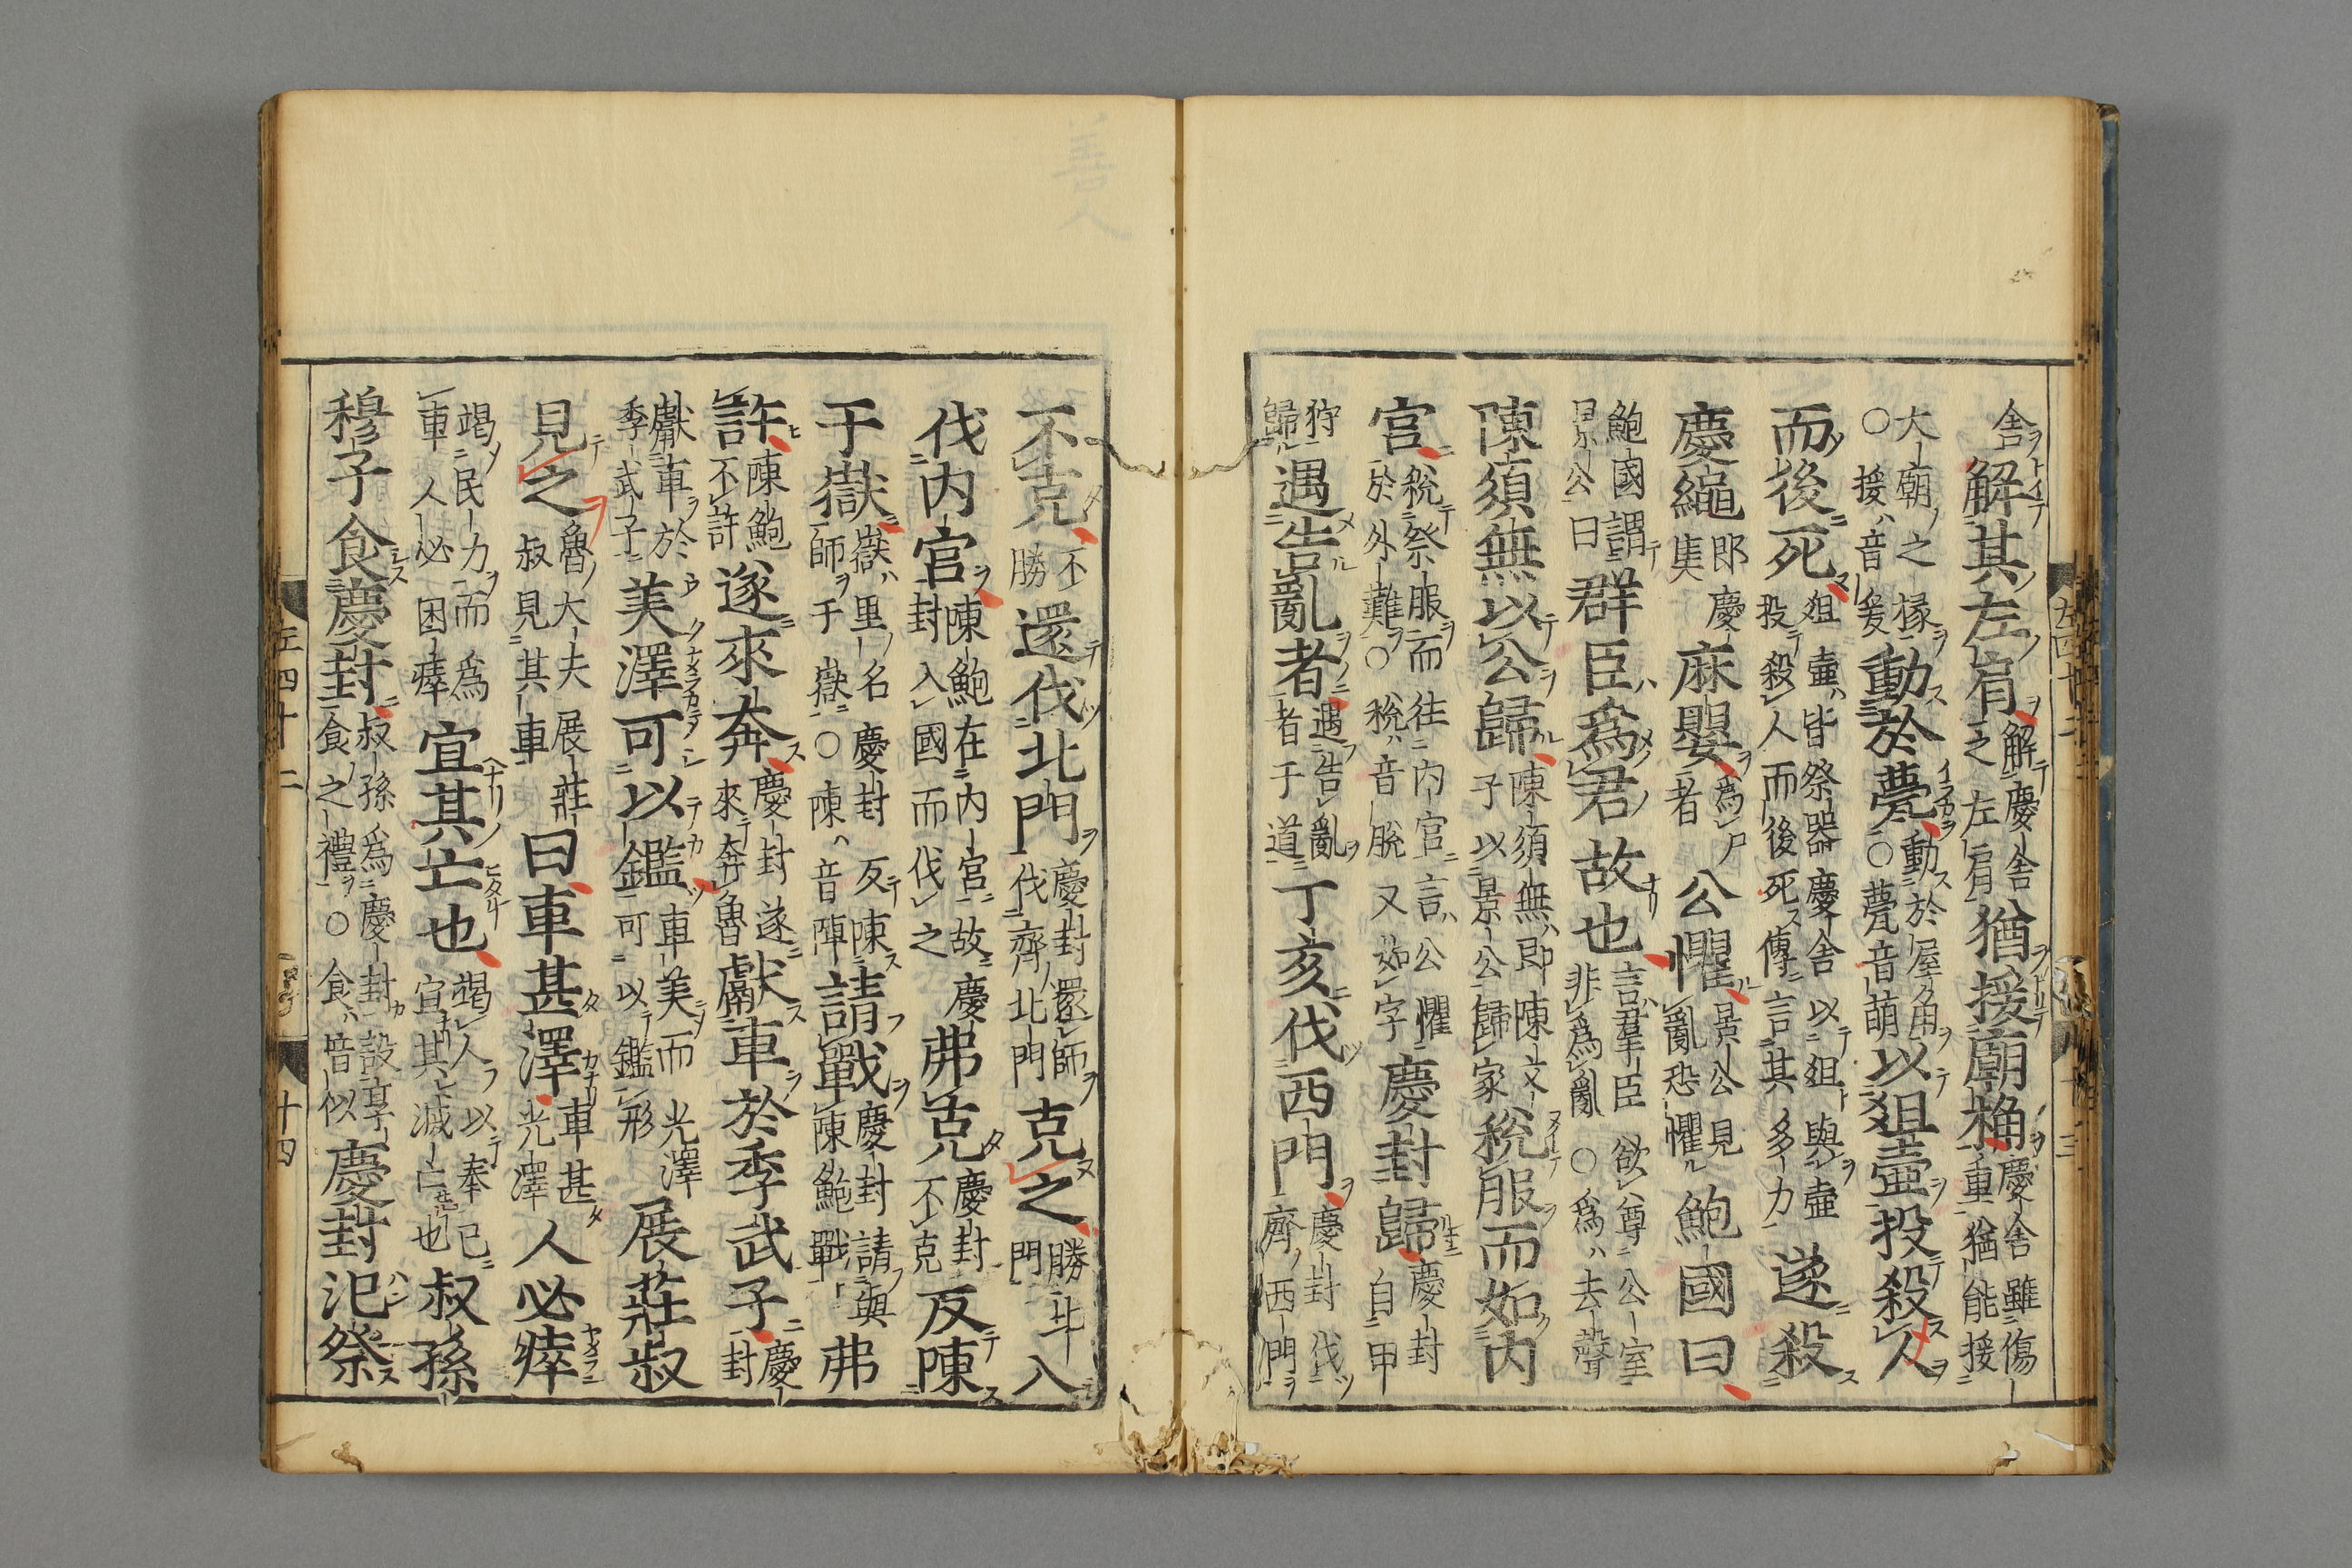 舍解其左肩解慶舍之左肩猶援廟桷慶舍雖傷重猶能援
大廟之椽○援音爰動於甍動於屋角○甍音萌以俎壺投殺人
而後死俎壺皆祭器慶舍以俎與壺投殺人而後死傳言其多力遂殺
慶繩即慶奊麻嬰為尸者公懼景公見亂恐懼鮑國曰
鮑國謂景公曰群臣為君故也言羣臣欲尊公室非為亂○為去聲
陳須無以公歸陳須無即陳文子以景公歸家稅服而如内
宮稅祭服而往内宮言公懼於外難○稅音脫又如字慶封歸慶封自甲
狩歸遇告亂者遇告亂者于道丁亥伐西門慶封伐齊西門
不克不勝還伐北門慶封還師伐齊北門克之勝北門入
伐内宮陳鮑在内宮故慶封入國而伐之弗克慶封不克反陳
于嶽嶽里名慶封反陳師于嶽○陳音陣請戰慶封請與陳鮑戰弗
許陳鮑不許遂來奔慶封遂來奔魯獻車於季武子慶封
獻車於季武子美澤可以鑑車美而光澤可以鑑形展莊叔
見之魯大夫展莊叔見其車曰車甚澤車甚光澤人必瘁
竭民力而為車人必困瘁宜其亡也竭人以奉己宜其滅亡也叔孫
穆子食慶封叔孫為慶封設享食之禮○食音似慶封氾祭
左四十二 十四